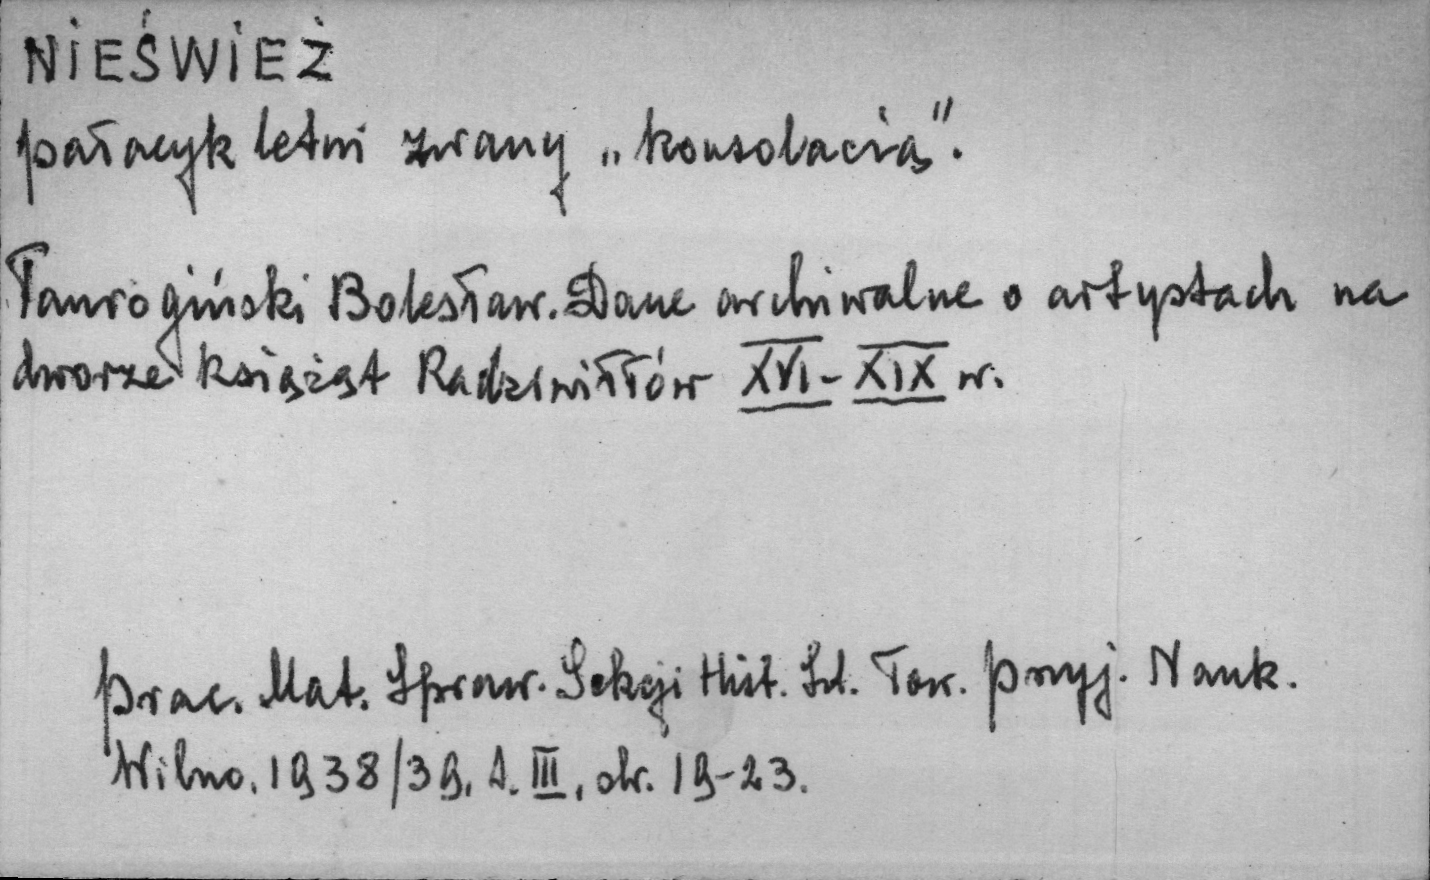 NIEŚWIEŻ
pałacyk letni zwany „konsolacią".
Taurogiński Bolesław. Dane archiwalne o artystach na
dworze książąt Radziwiłłów XVI-XIX w.
Prac. Mat. Spraw. Sekcji Hist. Szt. Tow. Przyj. Nauk.
Wilno. 1938/39, t. III, str. 19-23.